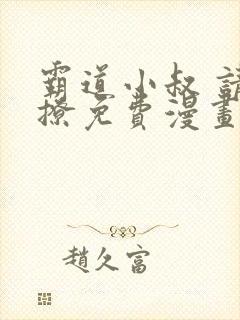 霸道小叔 請
撩免費漫畫
趙久富